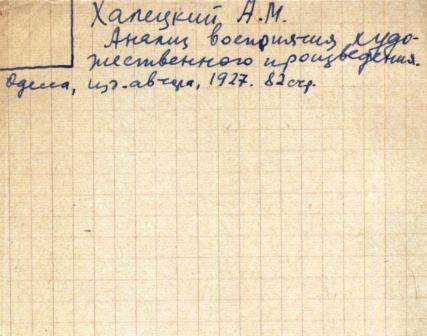 Халецкий А.М.
Анализ восприятия худо-
жественного произведения.
Одесса, изд. автора, 1927. 82 стр.